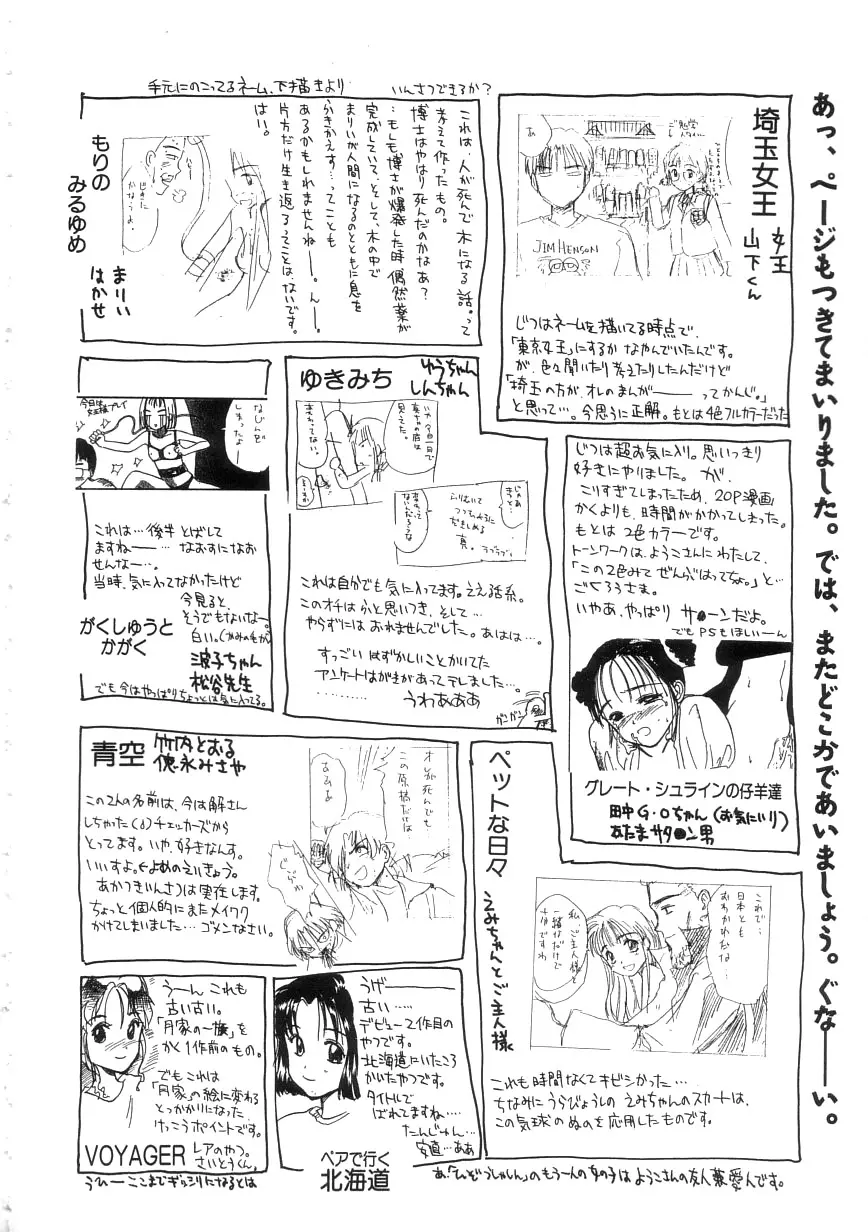 あっ、ページもつきてまいりました。では、またどこかであいましょう。ぐなーーい。
手元にのこってるネーム、下描きより
いんさつできるか？
埼玉女王
女王
山下くん
あ
JIM HENSON
じつはネームを描いてる時点で、
「東京女王」にするか なやんでいたんです。
が、色々聞いたり考えたりしたんだけど
「埼玉の方が、オレのまんが——ってかんじ。」
と思って…。今思うに正解。もとは4色フルカラーだった
これは、人が死んで木になる話。って
考えて作ったもの。
博士はやはり死んだのかなあ？
…もしも博士が爆発した時 偶然薬が
完成していて、そして、木の中で
まりいが人間になるのとともに息を
ふきかえす…ってことも
あるかもしれませんねー。んー。
片方だけ生き返るってことは、ないです。
はい。
もりの
みるゆめ
まりい
はかせ
ゆきみち
ゆうちゃん
しんちゃん
これは自分でも気に入ってます。ええ話系。
このオチは ふと思いつき、そして…
やらずには おれませんでした。あはは…。
すっごい はずかしいことかいてた
アンケートはがきがあってテレました…。
…………
うわあああ
ガンガン
今日は
女王様プレイ
なじんで
しまったな…
これは… 後半 とばして
ますねー… なおすになお
せんなー…。
当時、気に入ってなかったけど
今見ると、
そうでもないなー。
白い。(かみの毛が)
がくしゅうと
かがく
波子ちゃん
松谷先生
でも今はやっぱりちょっとは気に入ってる。
じつは超お気に入り。思いっきり
好きにやりました。が、
こりすぎてしまったため、20P漫画
かくよりも、時間がかかってしまった。
もとは2色カラーです。
トーンワークは、ようこさんにわたして、
「この2色みて ぜんぶはってちょ。」と…
ごくろうさま。
いやあ、やっぱり サ●ーンだよ。
でもPSもほしいーん
グレート・シュラインの仔羊達
田中G・Oちゃん(お気にいり)
あたまサタ●ン男
青空
竹内とおる
徳永みさや
この2人の名前は、今は解さん
しちゃった(δ)チェッカーズから
とってます。いや、好きなんす。
いいすよ。←よめのえいきょう。
あかつきいんさつは実在します。
ちょっと個人的にまたメイワク
かけてしまいました… ゴメンなさい。
オレが死んでも
この原稿だけは…
ペットな日々
えみちゃんとご主人様
これで…
日本とも
おわかれだな…
私、ご主人様と
一緒だけで
これも時間なくてキビシかった…
ちなみに うらびょうしの えみちゃんのスカートは、
この気球の ぬのを応用したものです。
うーん これも
古い古い。
「月家の一族」を
かく1作前のもの。
でもこれは
「月家」の絵に変わる
とっかかりになった、
けっこうポイントです。
VOYAGER
レアのやつ。
さいとうくん。
うげーーー
古い……
デビュー2作目の
やつです。
北海道にいたころ
かいたやつです。
タイトルで
ばれてますね…
たんじゅん…
安直…ああ
ペアで行く
北海道
うひー ここまでぎっシリになるとは
あ、「ひぞうしゃしん」のもう一人の女の子は ようこさんの友人